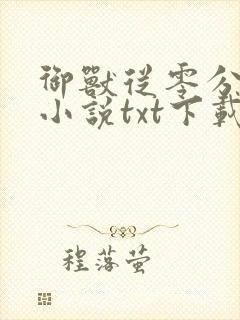 御獸從零分
小說txt下載
程落萤